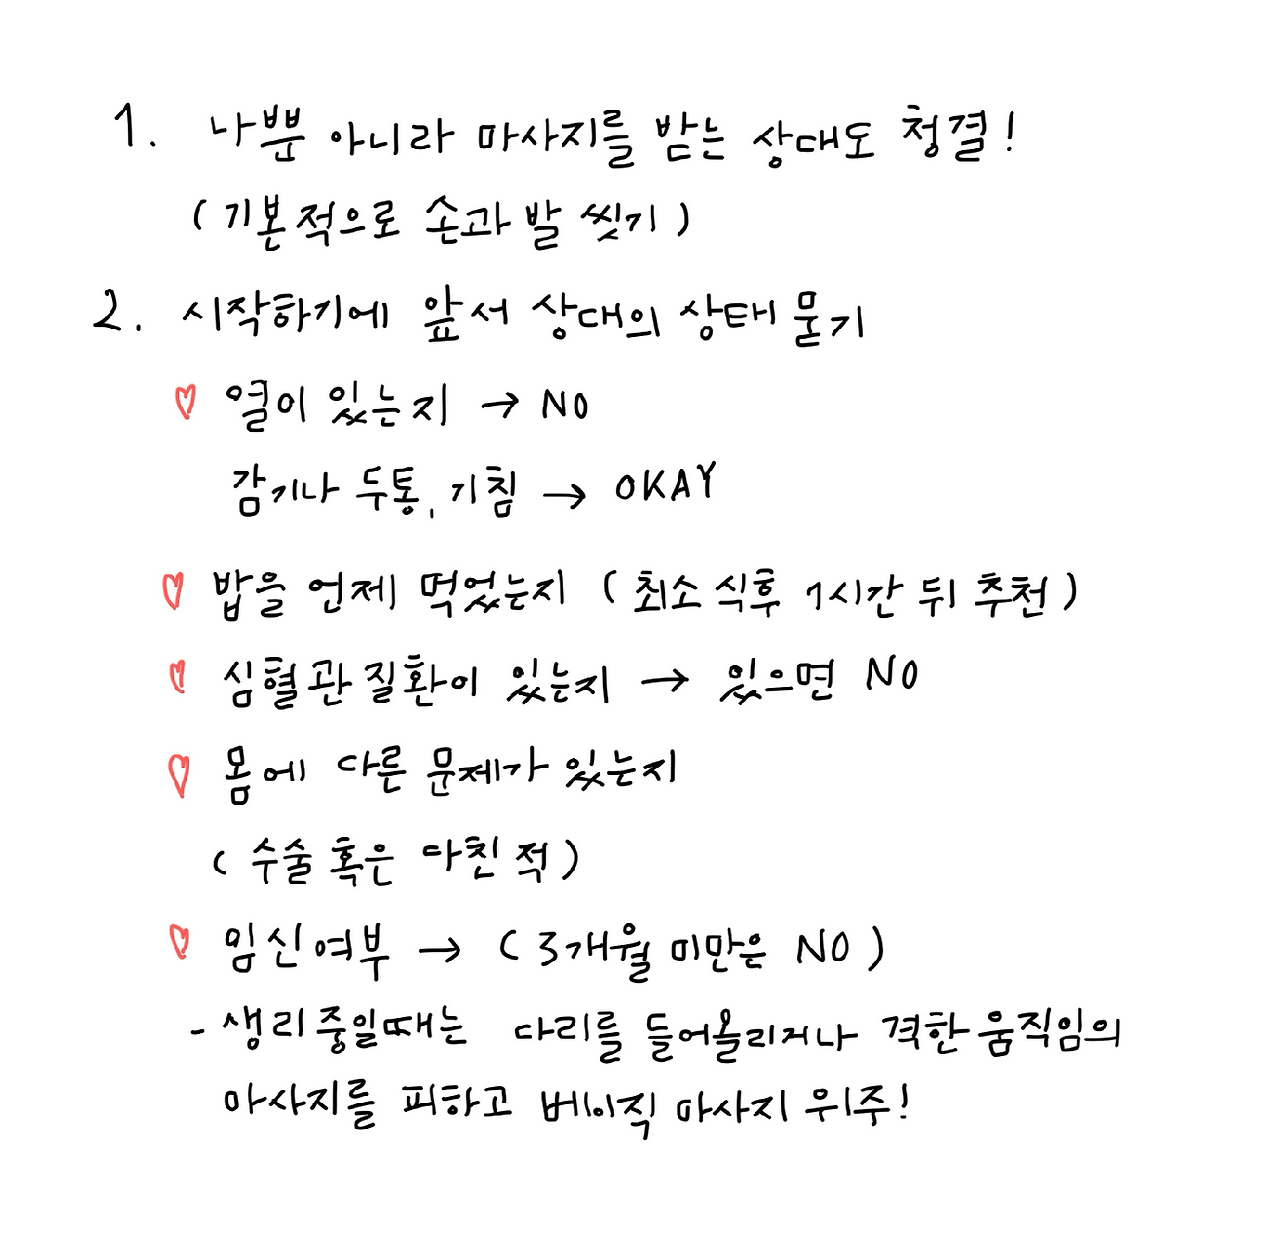 1. 나뿐 아니라 마사지를 받는 상대도 청결!
(기본적으로 손과 발 씻기)
2. 시작하기에 앞서 상대의 상태 묻기
♡ 열이 있는지 → NO
감기나 두통, 기침 → OKAY
♡ 밥을 언제 먹었는지 (최소 식후 1시간 뒤 추천)
♡ 심혈관 질환이 있는지 → 있으면 NO
♡ 몸에 다른 문제가 있는지
(수술 혹은 다친 적)
♡ 임신여부 → (3개월 미만은 NO)
- 생리중일때는 다리를 들어올리거나 격한 움직임의
마사지를 피하고 베이직 마사지 위주!